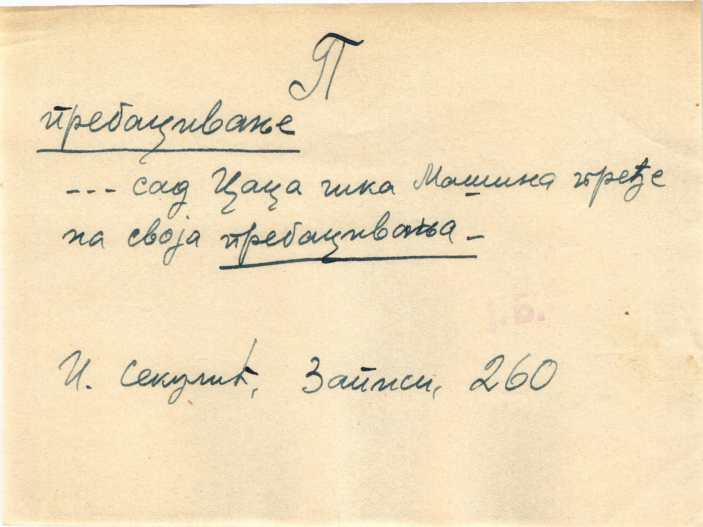 П
пребацивање
--- сад Цаца шка Машина пређе
на своја пребацивања -
Ј.Б.
И. Секулић, Записи, 260